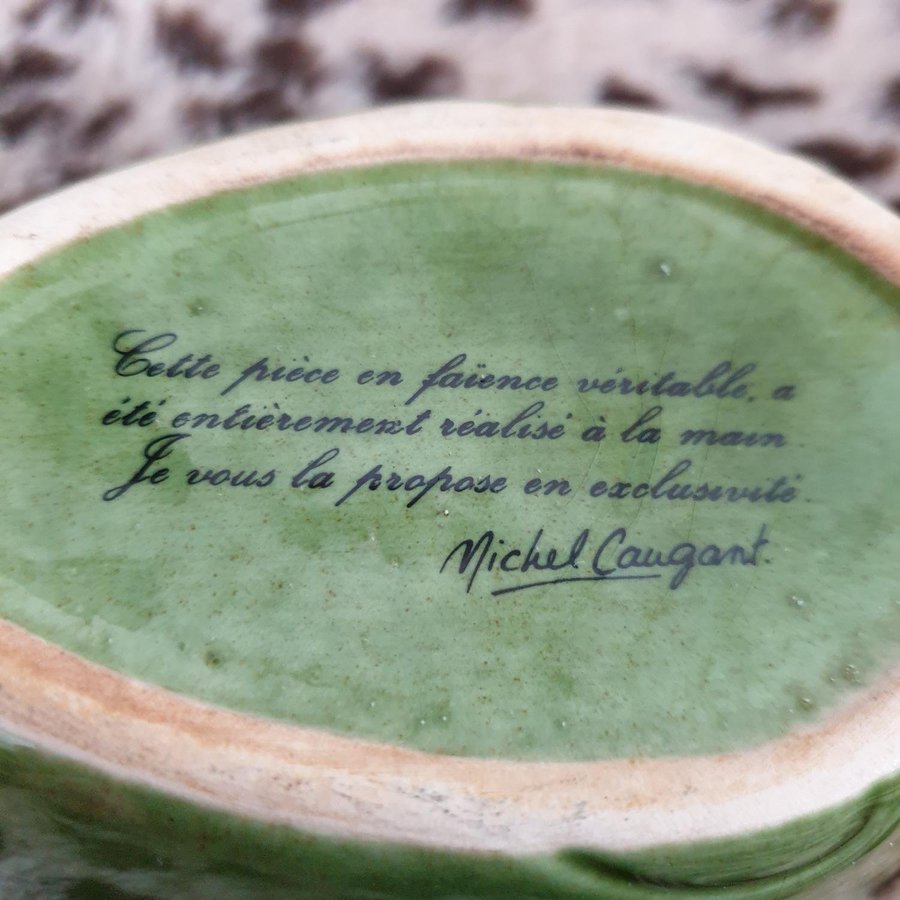 Cette pièce en faïence véritable, a
été entièrement réalisé à la main.
Je vous la propose en exclusivité.
Michel Caugant.